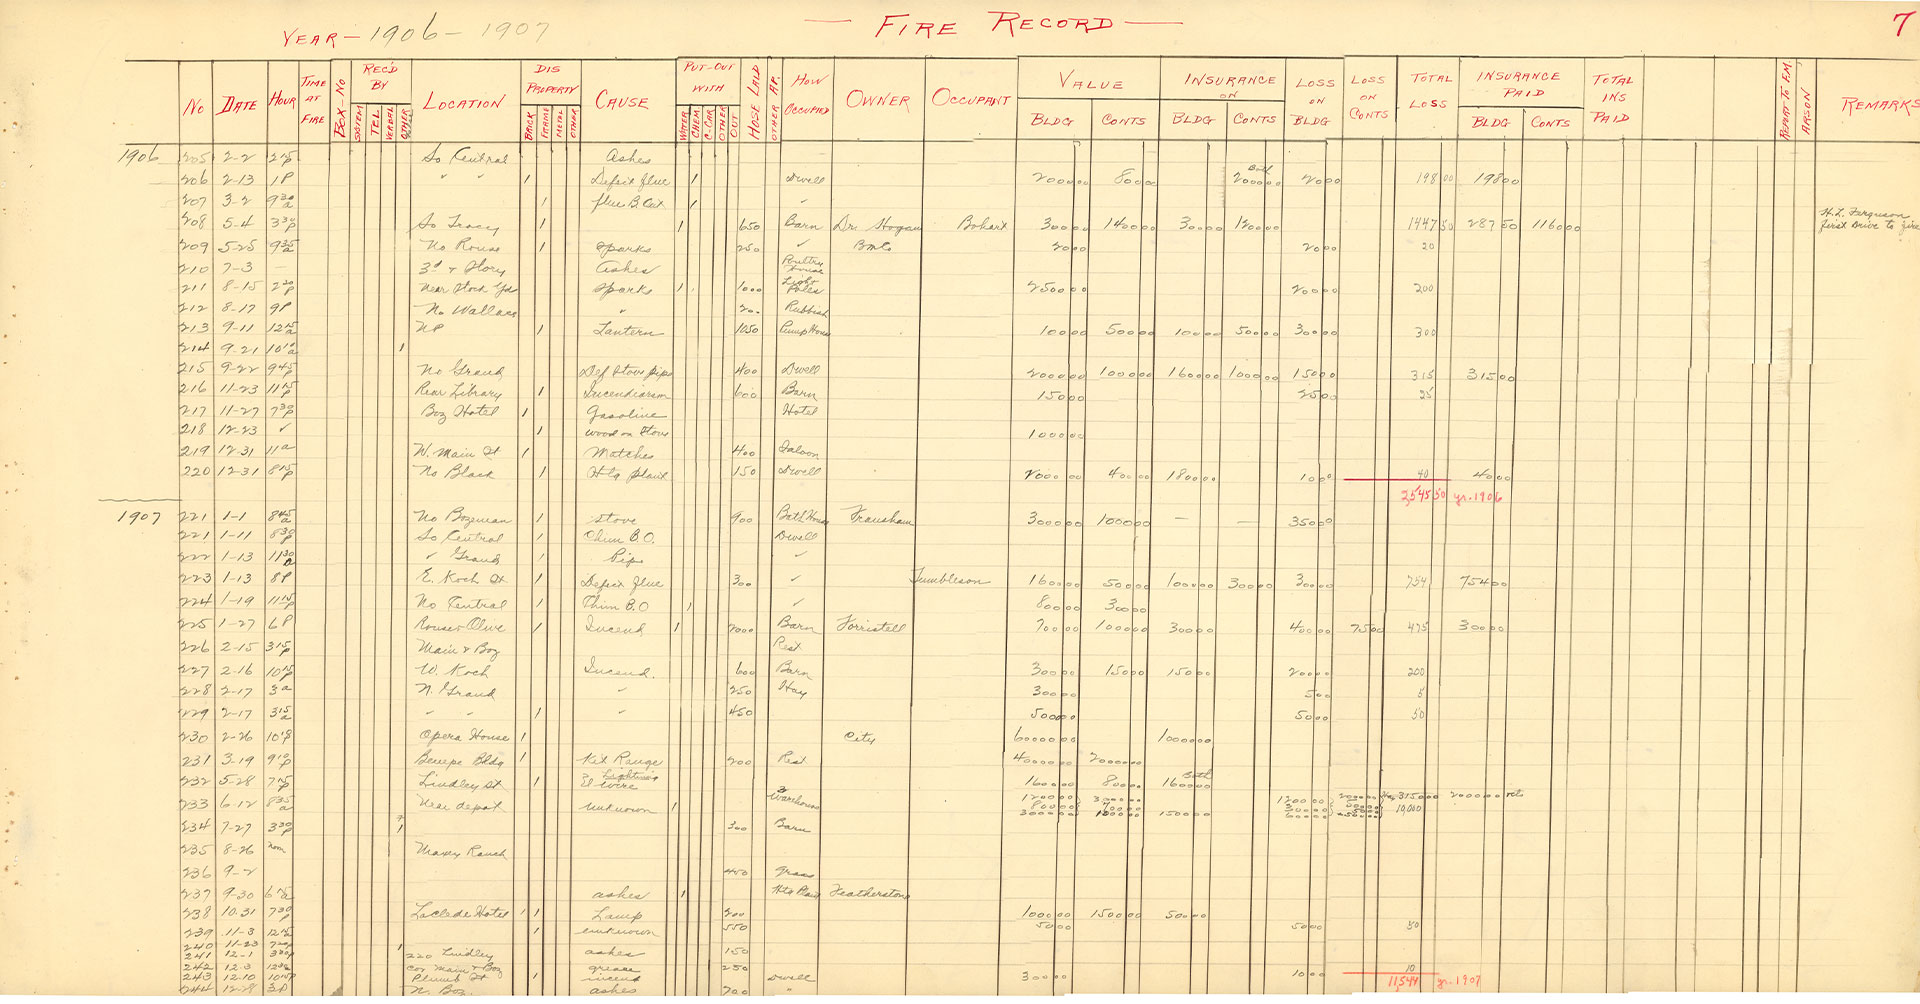 YEAR - 1906 - 1907 FIRE RECORD 7
No DATE HOUR TIME AT FIRE BOX-No REC'D BY SYSTEM TEL VERBAL OTHER LOCATION DIS PROPERTY BRICK FRAME METAL OTHER CAUSE PUT-OUT WITH WATER CHEM C-CAR OTHER OUT HOSE LAID OTHER AP. HOW OCCUPIED OWNER OCCUPANT VALUE BLDG CONTS INSURANCE ON BLDG CONTS LOSS ON BLDG LOSS ON CONTS TOTAL LOSS INSURANCE PAID BLDG CONTS TOTAL INS PAID REPORT TO F.M. ARSON REMARKS
1906 205 2-2 2 15 P So Central Ashes
206 2-13 1P " " 1 Defect flue 1 Dwell 2000 00 800 00 Both 2000 00 200 00 198 00 198 00
207 3-2 9 30 a 1 flue B. Out 1 "
208 5-4 3 30 P So Tracy 1 1 650 Barn Dr. Hogan Bohart 300 00 1400 00 300 00 1200 00 1447 50 287 50 1160 00 H.L. Ferguson first Drive to fire
209 5-25 9 35 a No Rouse 1 sparks 250 " B.M.Co 20 00 20 00 20
210 7-3 — 3d + Story Ashes Poultry House
211 8-15 2 20 P Near Stock Yds sparks 1 1000 Light Poles 2500 00 200 00 200
212 8-17 9P No Wallace " 200 Rubbish
213 9-11 12 15 a NP 1 Lantern 1050 Pump House 1000 00 500 00 1000 00 500 00 300 00 300
214 9-21 10 10 a 1
215 9-22 9 45 P No Grand Def Stove pipe 400 Dwell 2000 00 1000 00 1600 00 1000 00 150 00 315 315 00
216 11-23 11 15 P Rear Library 1 Incendiarism 600 Barn 150 00 25 00 25
217 11-27 7 30 P Boz Hotel 1 Gasoline Hotel
218 12-23 " 1 wood on stove 1000 00
219 12-31 11 a W. Main St 1 Matches 400 Saloon
220 12-31 8 15 P No Black 1 Htg plant 150 Dwell 2000 00 400 00 1800 00 10 00 40 40 00
2545 50 yr. 1906
1907 221 1-1 8 45 a No Bozeman 1 stove 900 Bath House Fransham 3000 00 1000 00 — — 350 00
221 1-11 8 30 P So Central 1 Chim B.O. Dwell
222 1-13 11 30 a " Grand 1 Pipe "
223 1-13 8P E. Koch St 1 Defect flue 300 " Tumbleson 1600 00 500 00 1000 00 300 00 300 00 754 754 00
224 1-19 11 15 P No Central 1 Chim B.O 1 " 800 00 300 00
225 1-27 6P Rouse + Olive 1 Incend 1 2000 Barn Forristell 700 00 1000 00 300 00 400 00 75 00 475 300 00
226 2-15 3 15 P Main + Boz Rest
227 2-16 10 15 P W. Koch Incend. 600 Barn 300 00 150 00 150 00 200 00 200
228 2-17 3 a N. Grand " 250 Hay 300 00 5 00 5
229 2-17 3 15 a " " 1 " 450 500 00 50 00 50
230 2-26 10 15 P Opera House 1 City 60000 00 10000 00
231 3-19 9 10 P Benepe Bldg 1 Kit Range 200 Rest 4000 00 2000 00
232 5-28 7 15 P Lindley St 1 Lightning El Wire 1600 00 800 00 Both 1600 00
233 6-12 8 35 a Near depot unknown 1 3 Warehouse 10,000
234 7-27 3 30 P 1 300 Barn
235 8-26 noon Maxey Ranch
236 9-2 400 grass
237 9-30 6 15 a ashes 1 Htg Plant Featherstone
238 10-31 7 30 P Laclede Hotel 1 1 Lamp 200 1000 00 1500 00 500 00
239 11-3 12 15 a 1 unknown 550 50 00 50 00 50
240 11-23 7 20 P 1
241 12-1 3 30 P 220 Lindley ashes 150
242 12-3 12 30 cor Main + Boz grease 250
243 12-10 10 15 P Plumb St 1 incend Dwell 300 00 10 00 10
244 12-28 3P N. Boz ashes 700 "
11,544 yr. 1907